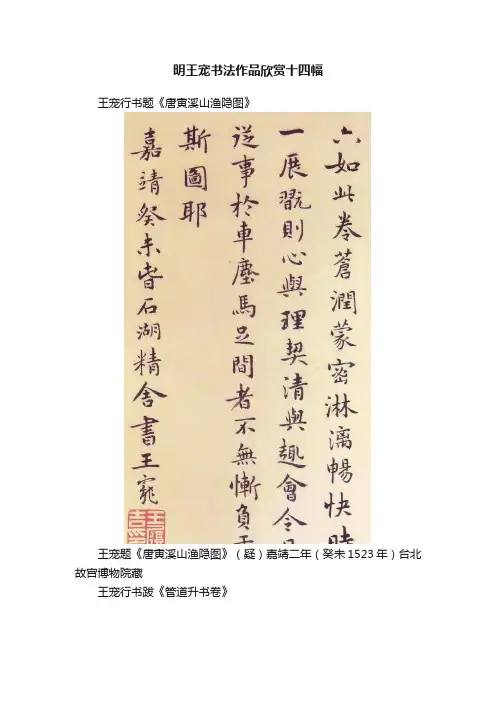 明王宠书法作品欣赏十四幅
王宠行书题《唐寅溪山渔隐图》
六如此卷蒼潤蒙密淋漓暢快時
一展翫則心與理契清與趣會令
從事於車塵馬足間者不無慚負
斯圖耶
嘉靖癸未石湖精舍書王寵
王宠题《唐寅溪山渔隐图》（疑）嘉靖二年（癸未1523年）台北
故宫博物院藏
王宠行书跋《管道升书卷》